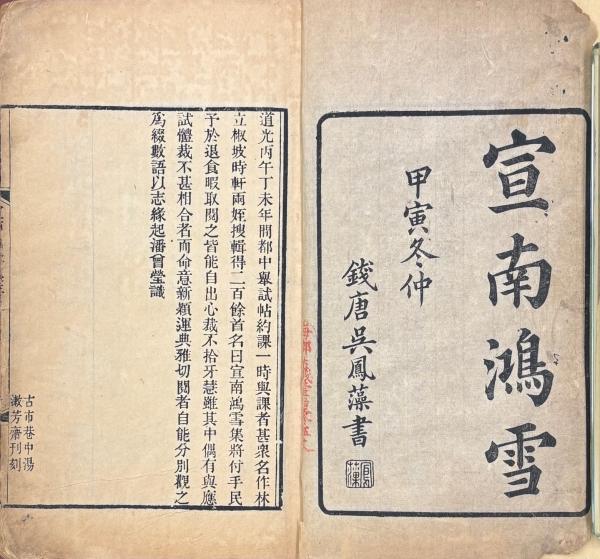 宣南鴻雪
甲寅冬仲
錢唐吳鳳藻書
道光丙午丁未年間都中舉試帖約課一時與課者甚衆名作林
立椒坡時軒兩姪搜輯得二百餘首名曰宣南鴻雪集將付手民
予於退食暇取閱之皆能自出心裁不拾牙慧雖其中偶有與應
試體裁不甚相合者而命意新穎運典雅切閱者自能分別觀之
爲綴數語以志緣起潘曾瑩識
古市巷中湯
漱芳齋刊刻